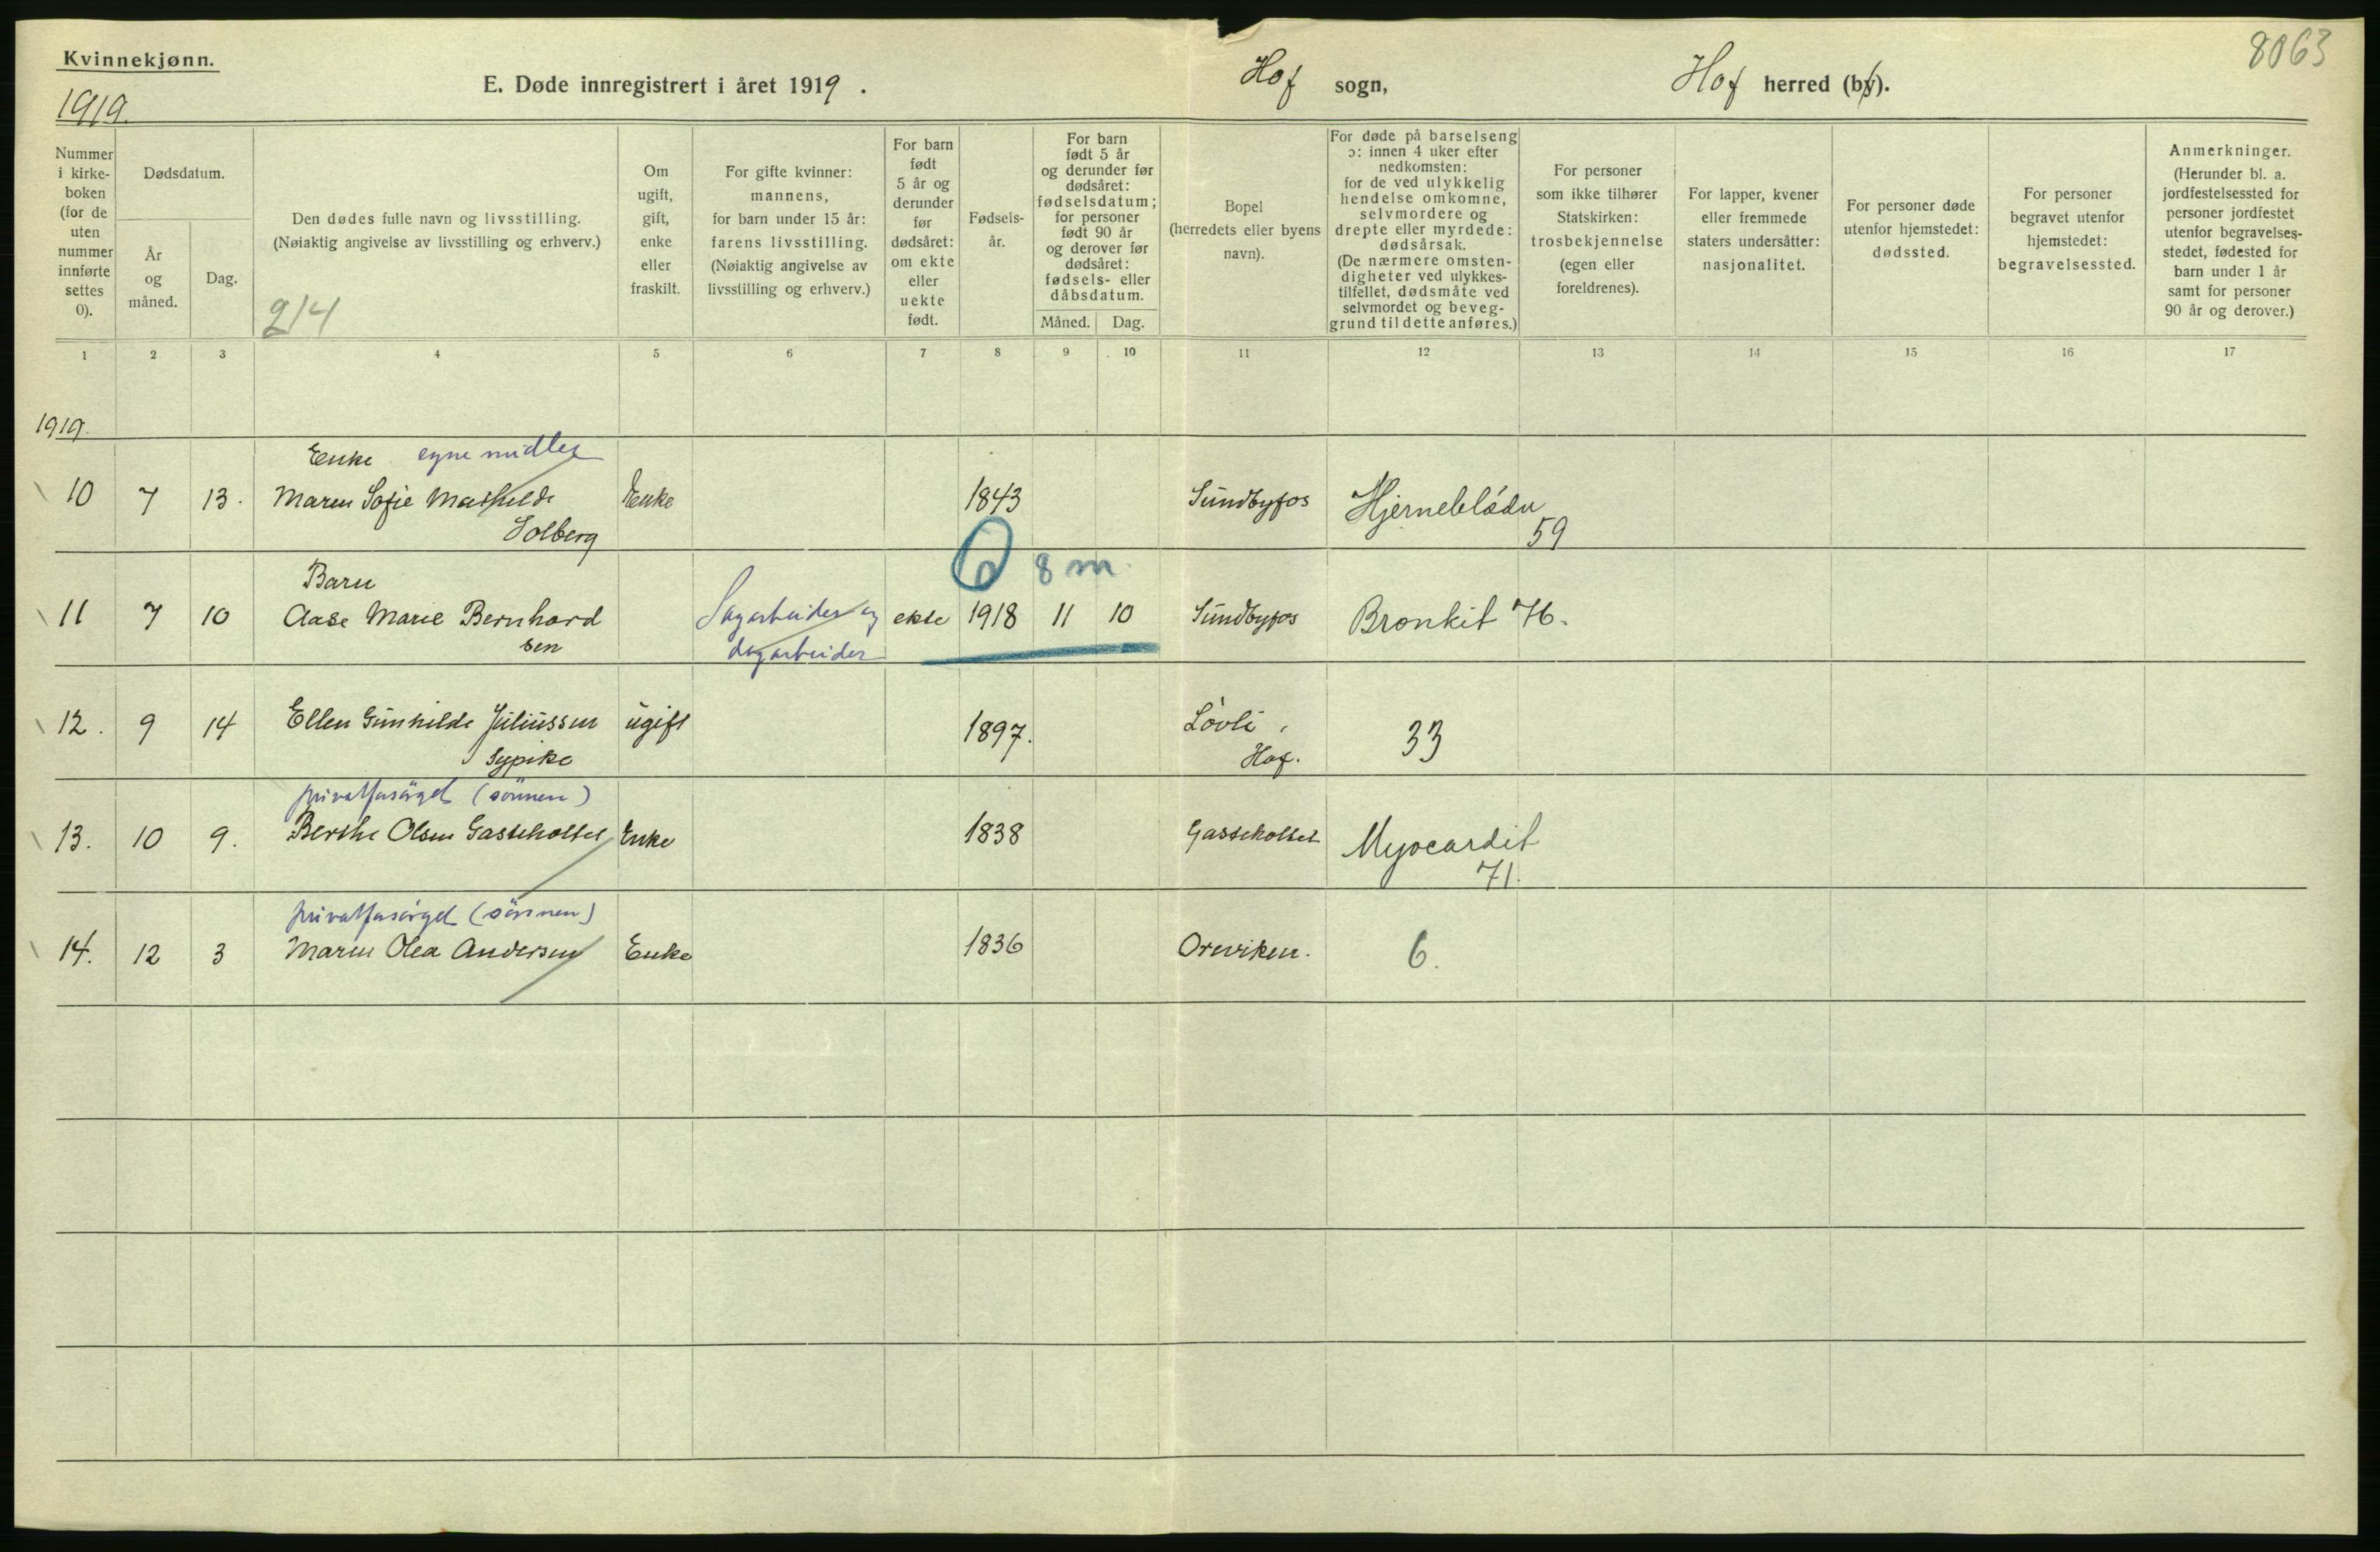 Kvinnekjønn.
1919.
E. Døde innregistrert i året 1919.
Hof sogn,
Hof herred (by).
8063
Nummer i kirke-boken (for de uten nummer innførte settes 0).
Dødsdatum.
År og måned.
Dag.
Den dødes fulle navn og livsstilling.
(Nøiaktig angivelse av livsstilling og erhverv.)
214
Om ugift, gift, enke eller fraskilt.
For gifte kvinner: mannens, for barn under 15 år: farens livsstilling.
(Nøiaktig angivelse av livsstilling og erhverv.)
For barn født 5 år og derunder før dødsåret: om ekte eller uekte født.
Fødsels-år.
For barn født 5 år og derunder før dødsåret: fødselsdatum; for personer født 90 år og derover før dødsåret: fødsels- eller dåbsdatum.
Måned.
Dag.
Bopel
(herredets eller byens navn).
For døde på barselseng ɔ: innen 4 uker efter nedkomsten: for de ved ulykkelig hendelse omkomne, selvmordere og drepte eller myrdede: dødsårsak.
(De nærmere omsten-digheter ved ulykkes-tilfellet, dødsmåte ved selvmordet og beveg-grund til dette anføres.)
For personer som ikke tilhører Statskirken: trosbekjennelse (egen eller foreldrenes).
For lapper, kvener eller fremmede staters undersåtter: nasjonalitet.
For personer døde utenfor hjemstedet: dødssted.
For personer begravet utenfor hjemstedet: begravelsessted.
Anmerkninger.
(Herunder bl. a. jordfestelsessted for personer jordfestet utenfor begravelses-stedet, fødested for barn under 1 år samt for personer 90 år og derover.)
1 2 3 4 5 6 7 8 9 10 11 12 13 14 15 16 17
1919.
Enke egne midler
10 7 13. Maren Sofie Mathilde Enke 1843 Sundbyfos Hjerneblødn
Solberg 59
Barn 6 8 m.
11 7 10 Aase Marie Bernhard Sagarbeider og ekte 1918 11 10 Sundbyfos Bronkit 76.
sen dagarbeider
12. 9 14 Ellen Gunhilde Juliussen ugift 1897. Løvli, 33
Sypike Hof.
privatforsörget (sönnen)
13. 10 9. Berthe Olsen Gasseholtet Enke 1838 Gasseholtet Myocardit
71.
privatforsörget (sönnen)
14. 12 3 Maren Olea Andersen Enke 1836 Oreviken. 6.